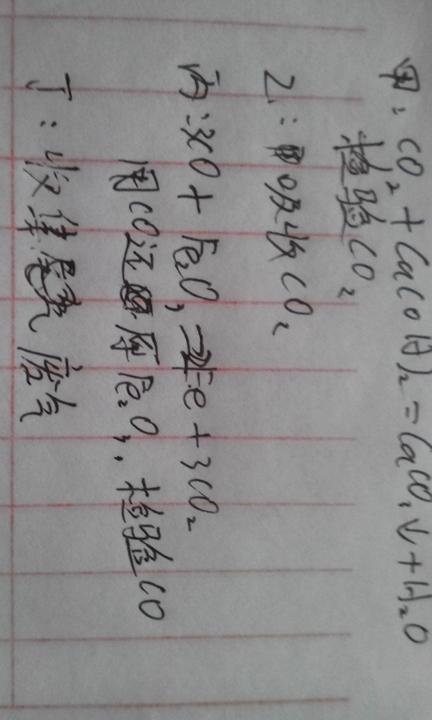 甲:CO₂+Ca(OH)₂=CaCO₃↓+H₂O
检验CO₂
乙:吸收CO₂
丙:3CO+Fe₂O₃=2Fe+3CO₂
用CO还原Fe₂O₃,检验CO
丁:收集尾气废气